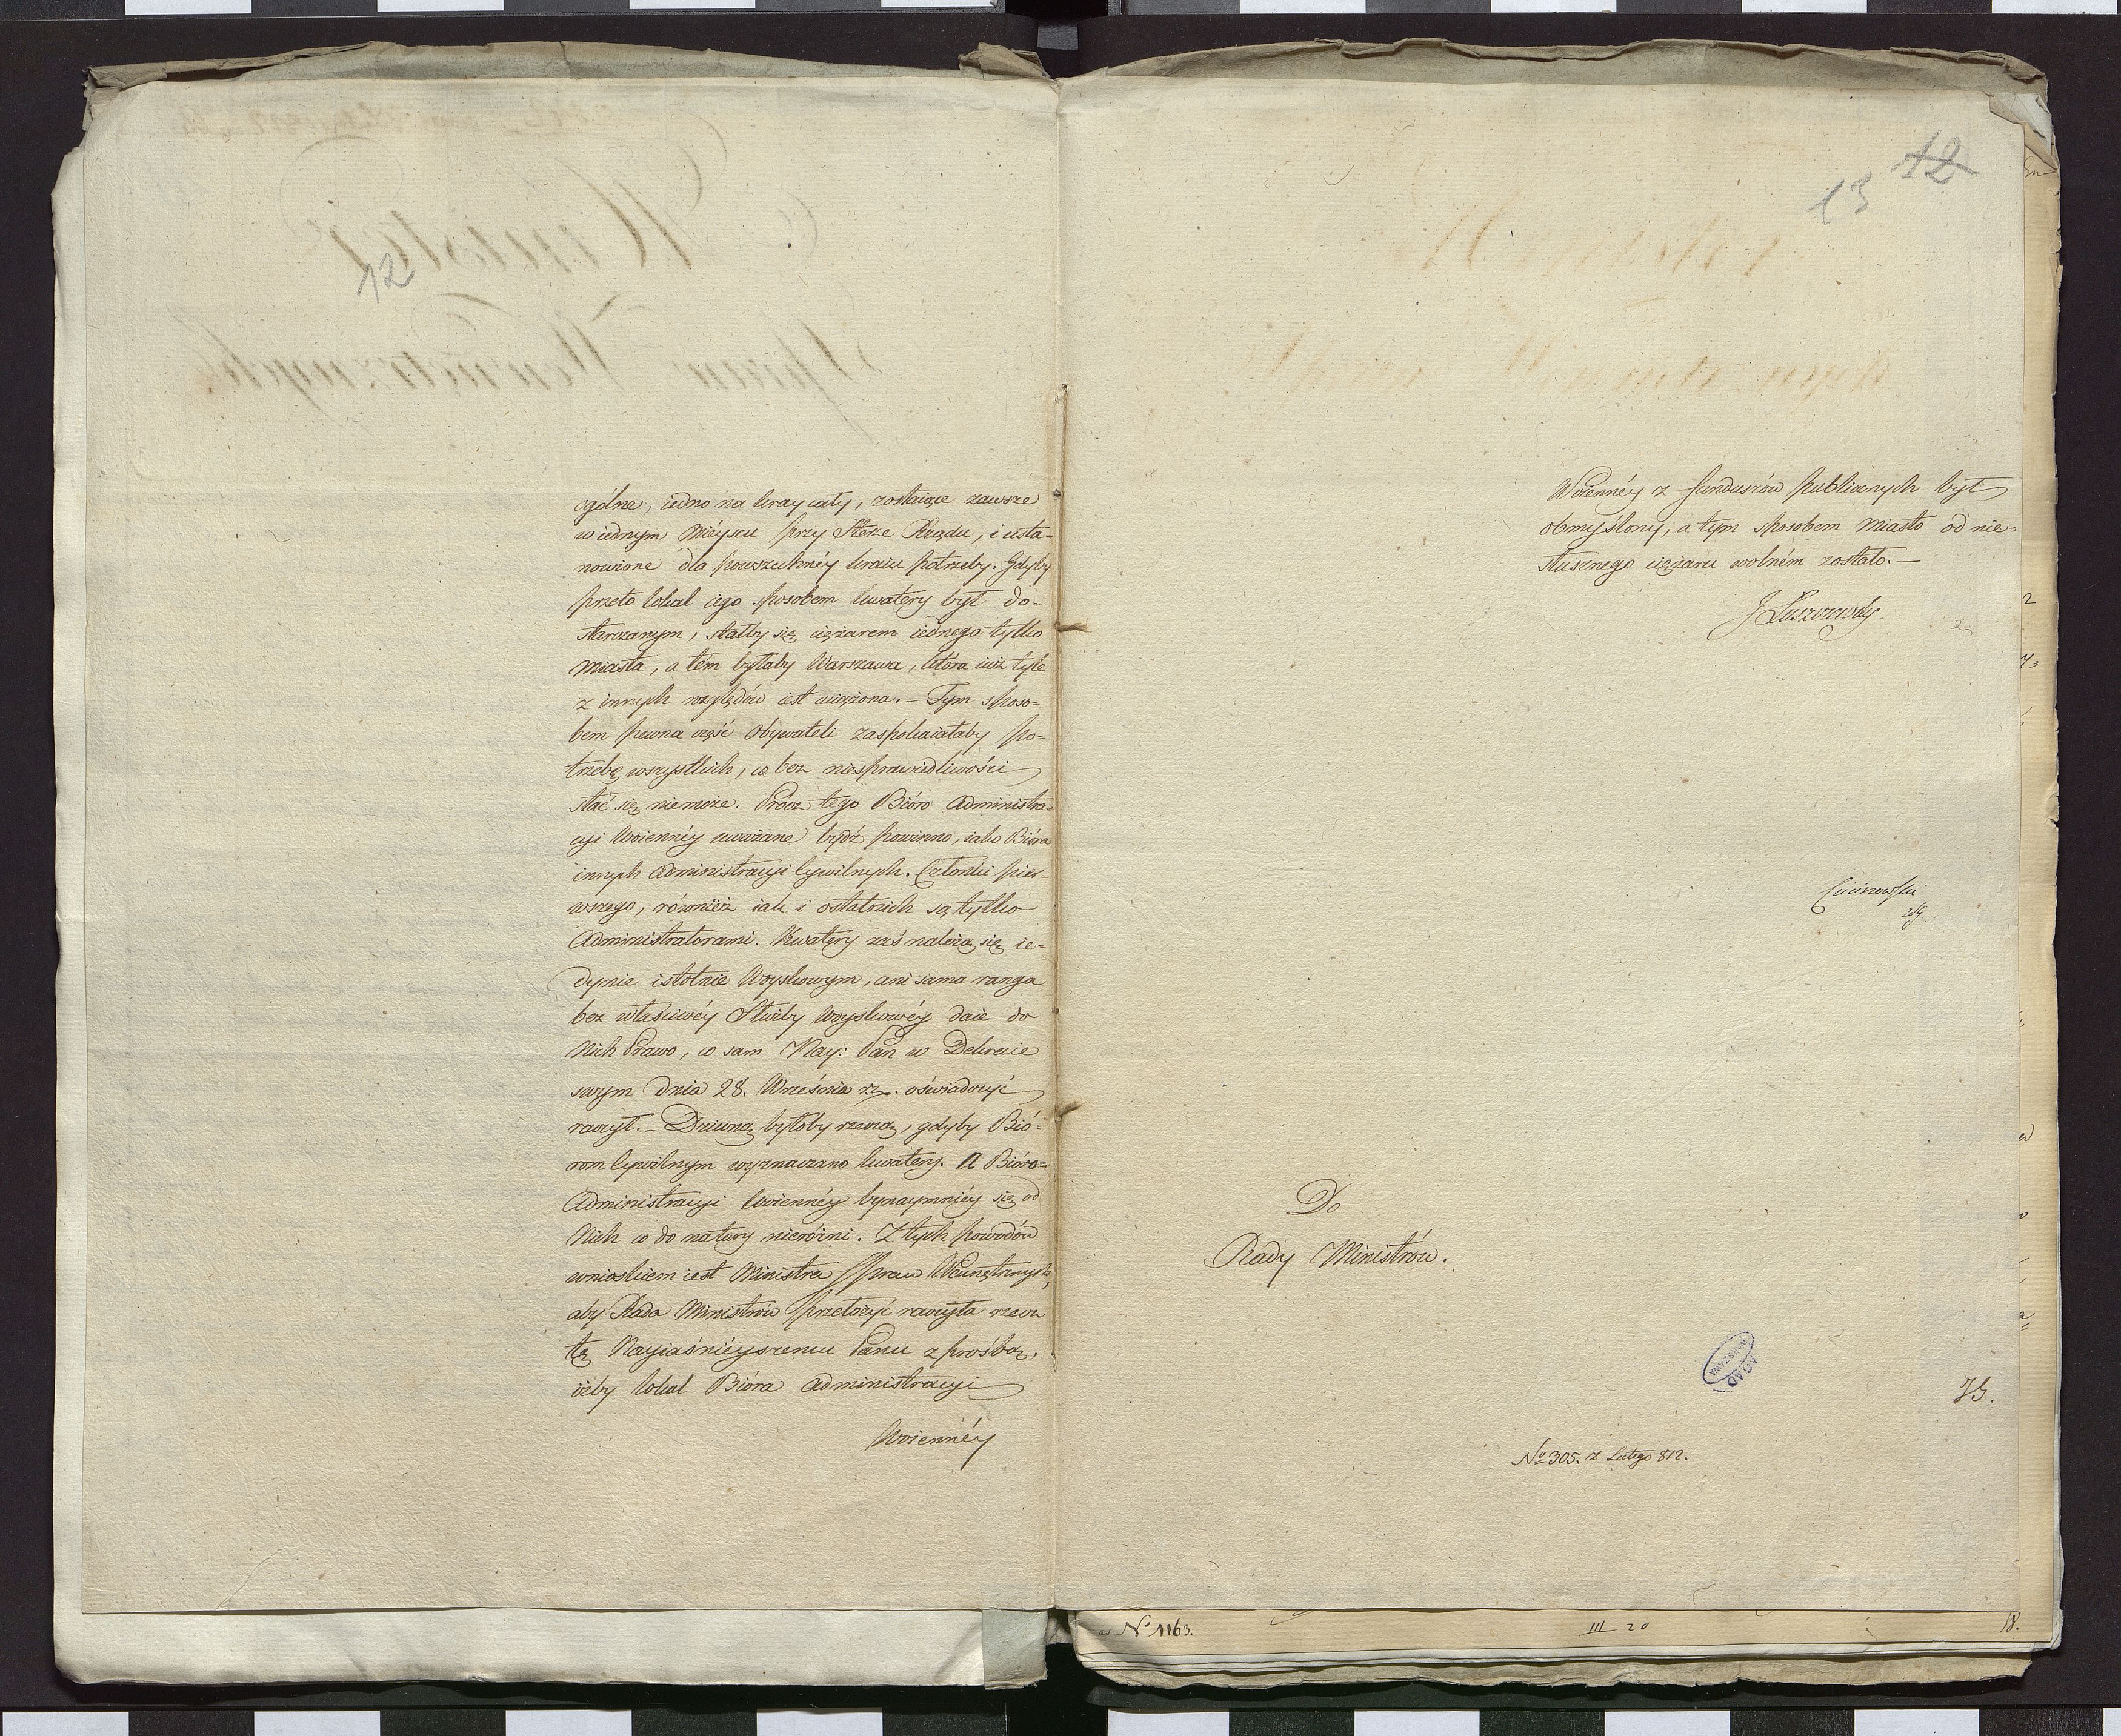 12
ogólne, iedno na kray cały, zostaiące zawsze
w iednym Mieyscu przy Sterze Rządu, i usta-
nowione dla powszechnéy kraiu potrzeby. Gdyby
przeto lokal iego sposobem kwatery był do-
starczanym, stałby się ciężarem iednego tylko
Miasta, a tém byłaby Warszawa, która iuż tyle
z innych względów iest uciążona. – Tym sposo-
bem pewna część Obywateli zaspokaiałaby po-
trzebę wszystkich, co bez niesprawiedliwości
stać się niemoże. Prócz tego Bióro Administra-
cyi Woiennéy uważane bydź powinno, iako Bióra
innych Administracyi Cywilnych. Członki pier-
wszego, również iak i ostatnich są tylko
Administratorami. Kwatery zaś należą się ie-
dynie istotnie Woyskowym, ani sama ranga
bez właściwéy Służby Woyskowéy daie do
Nich Prawo, co sam Nay: Pan w Dekrecie
swym dnia 28. Września oświadczyć
raczył. – Dziwną byłoby rzeczą, gdyby Bió-
rom Cywilnym wyznaczano kwatery. A Bióro
Administracyi Woiennéy bynaymniéy się od
Nich co do natury nieróżni. Z tych powodów
wnioskiem iest Ministra Spraw Wewnętrznych,
aby Rada Ministrów przełożyć raczyła rzecz
tę Nayiaśnieyszemu Panu z prośbą,
iżby lokal Bióra Administracyi
Woiennéy
12
13
Woiennéy z funduszów publicznych był
obmyślony, a tym sposobem Miasto od nie-
słusznego ciężaru wolném zostało. –
J Łuszczewski.
Do
Rady Ministrów.
AGAD
WARSZAWA
No 305. z Lutego 812.
No 1163.
III 20
18.